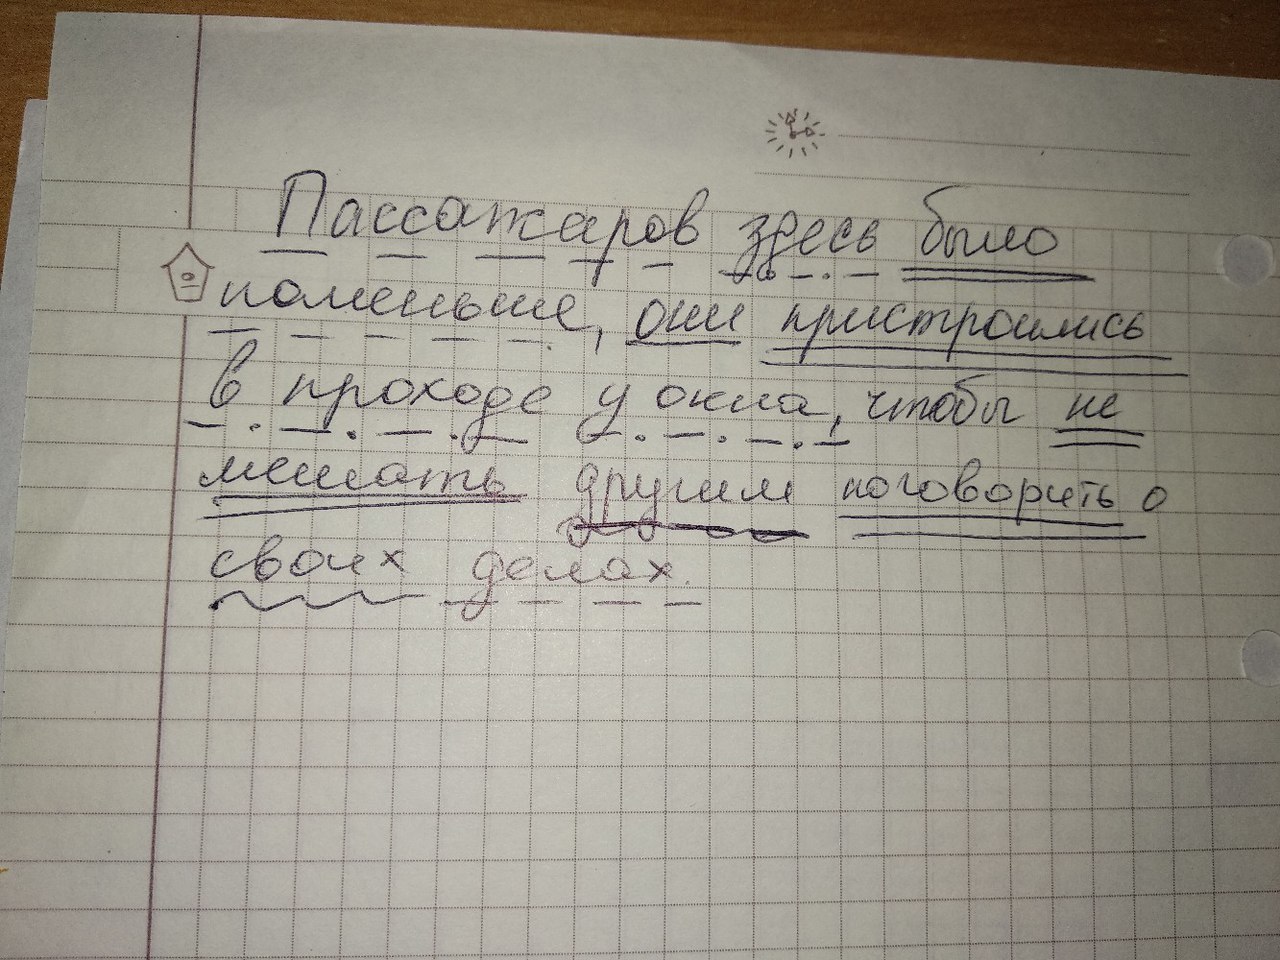 Пассажаров здесь было
поменьше, они пристроились
в проходе у окна, чтобы не
мешать другим поговорить о
своих делах.